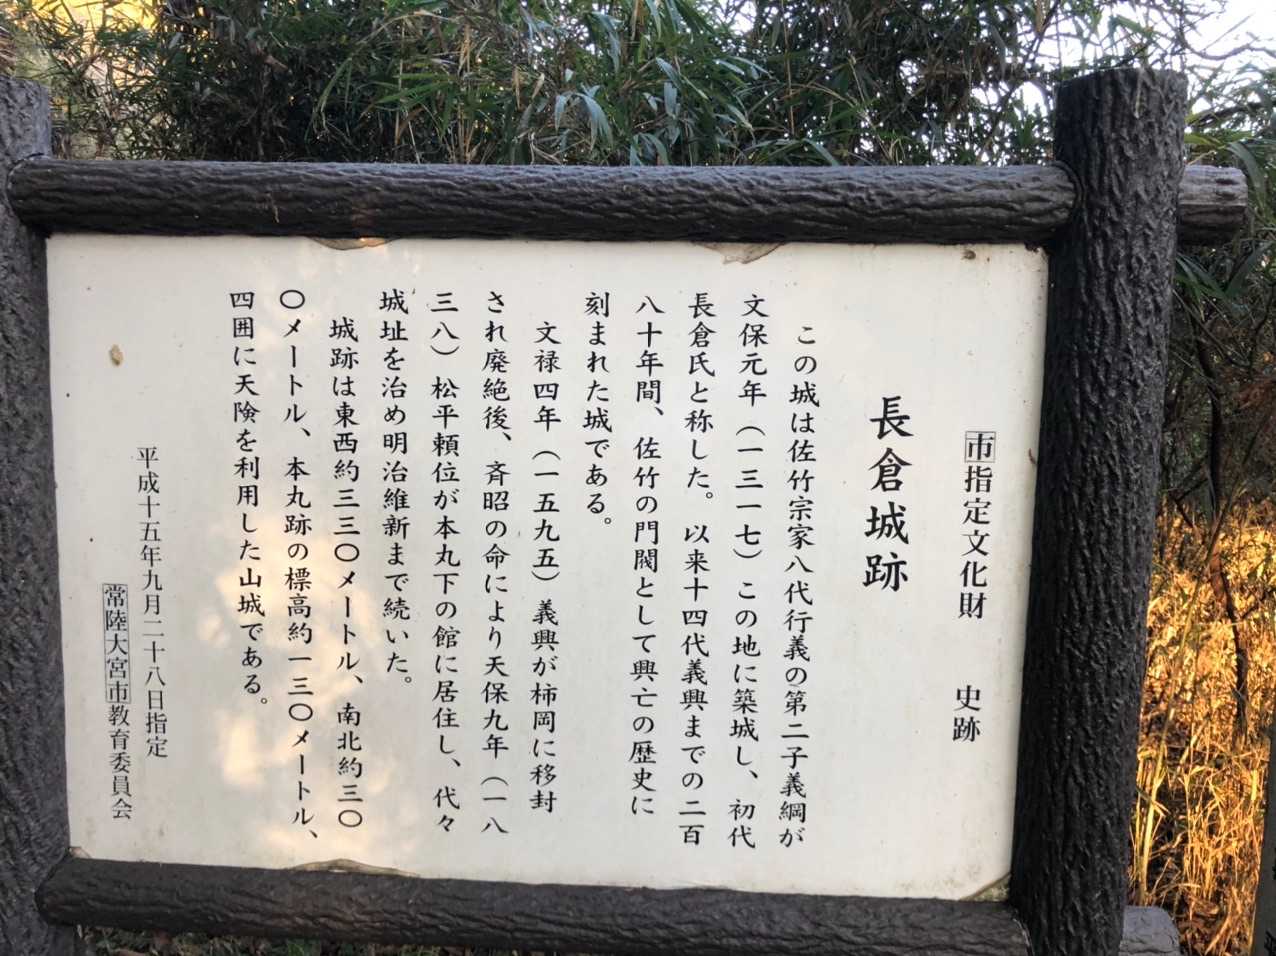 市指定文化財　史跡
長倉城跡
この城は佐竹宗家八代行義の第二子義綱が
文保元年（一三一七）この地に築城し、初代
長倉氏と称した。以来十四代義興までの二百
八十年間、佐竹の門閥として興亡の歴史に
刻まれた城である。
文禄四年（一五九五）義興が柿岡に移封
され廃絶後、斉昭の命により天保九年（一八
三八）松平頼位が本丸下の館に居住し、代々
城址を治め明治維新まで続いた。
城跡は東西約三三〇メートル、南北約三〇
〇メートル、本丸跡の標高約一三〇メートル、
四囲に天険を利用した山城である。
平成十五年九月二十八日指定
常陸大宮市教育委員会